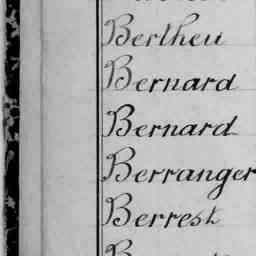 Bertheu
Bernard
Bernard
Berranger
Berrest